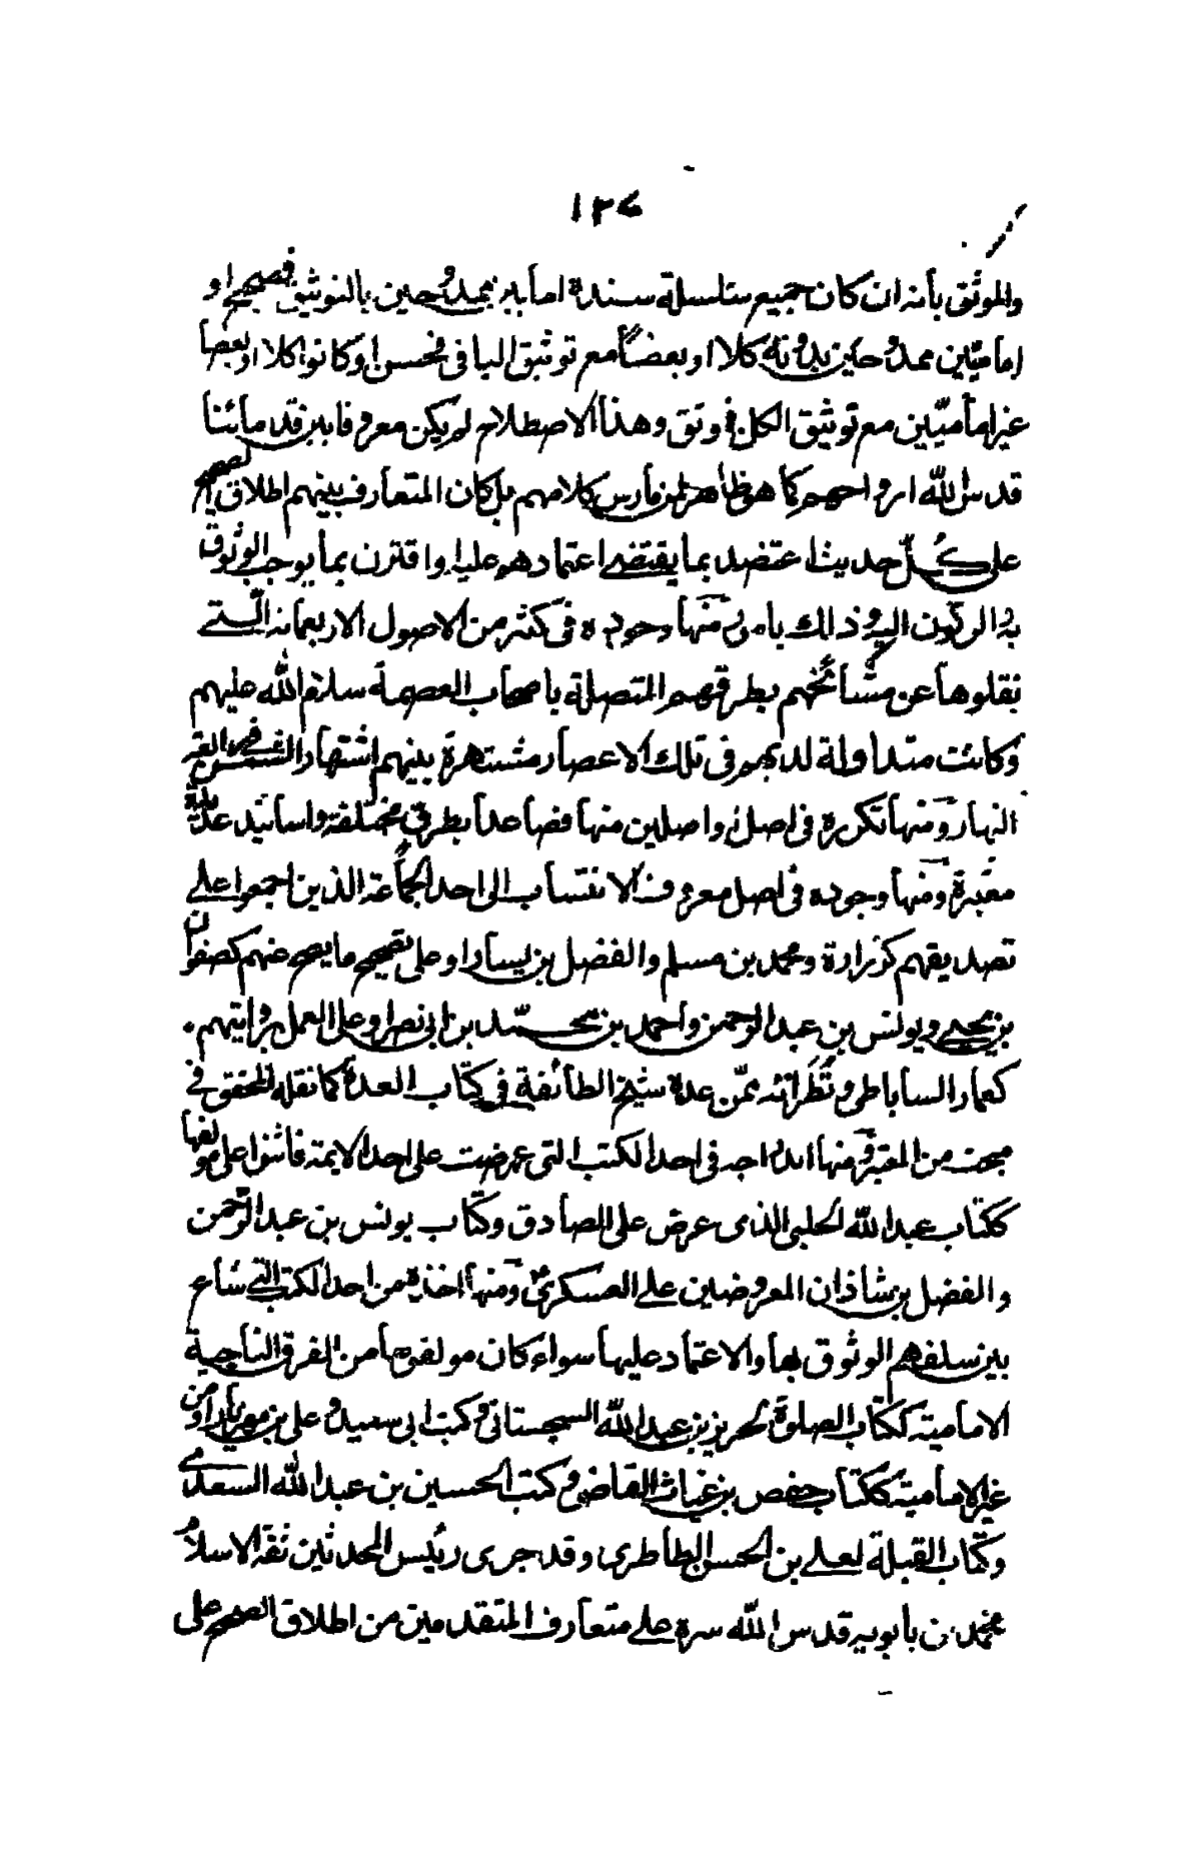 ١٢٧
والموثق بأنه ان كان جميع سلسلة سنده امامييين ممدوحين بالتوثيق فصحيح او
اماميين ممدوحين بدونه كلا او بعضاً مع توثيق الباقى فحسن او كانوا كلا او بعضا
غير اماميين مع توثيق الكل فموثق وهذا الاصطلاح لم يكن معروفا بين قدمائنا
قدس الله ارواحهم كما هو ظاهر لمن مارس كلامهم بل كان المتعارف بينهم اطلاق الصحيح
على كل حديث اعتضد بما يقتضى اعتمادهم عليه او اقترن بما يوجب الوثوق
به والركون اليه وذلك بامور منها وجوده فى كثير من الاصول الاربعمائة التى
نقلوها عن مشائخهم بطرقهم المتصلة باصحاب العصمة سلام الله عليهم
وكانت متداولة لديهم فى تلك الاعصار مشتهرة بينهم اشتهار الشمس فى رابعة
النهار ومنها تكرره فى اصل او اصلين منها فصاعدا بطرق مختلفة واسانيد عديدة
معتبرة ومنها وجوده فى اصل معروف الانتساب الى احد الجماعة الذين اجمعوا على
تصديقهم كزرارة ومحمد بن مسلم والفضل بن يسار او على تصحيح ما يصح عنهم كصفوان
بن يحيى ويونس بن عبد الرحمن واحمد بن محمد بن ابى نصر او على العمل بروايتهم
كعمار الساباطى ونظرائه ممن عده شيخ الطائفة فى كتاب العدة كما نقله المحقق فى
مبحث من المعتبر ومنها اندراجه فى احد الكتب التى عرضت على احد الائمة فاثنوا على مؤلفها
ككتاب عبد الله الحلبى الذى عرض على الصادق وكتاب يونس بن عبد الرحمن
والفضل بن شاذان المعروضين على العسكرى ومنها اخذه من احد الكتب التى شاع
بين سلفهم الوثوق بها والاعتماد عليها سواء كان مولفوها من الفرقة الناجية
الامامية ككتاب الصلوة لحريز بن عبد الله السجستانى وكتب ابى سعيد وعلى بن مهزيار او من
غير الامامية ككتاب حفص بن غياث القاضى وكتب الحسين بن عبد الله السعدى
وكتاب القبلة لعلى بن الحسن الطاطرى وقد جرى رئيس المحدثين ثقة الاسلام
محمد بن بابويه قدس الله سره على متعارف المتقدمين من اطلاق الصحيح على